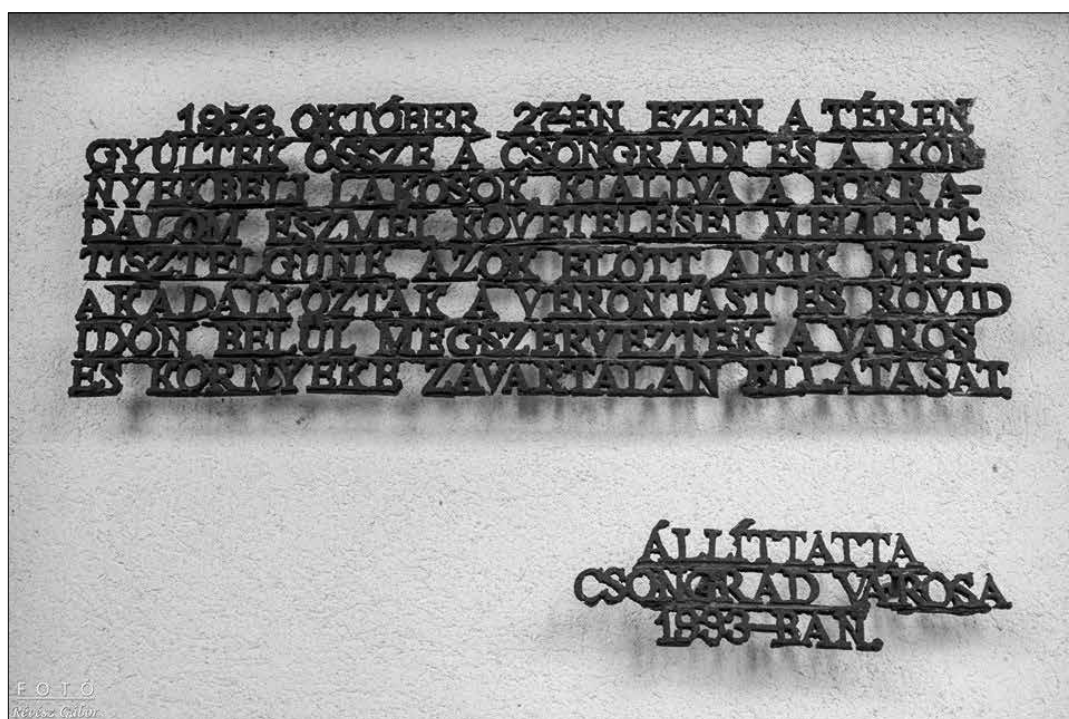 1956. OKTÓBER 27-ÉN EZEN A TÉREN
GYŰLTEK ÖSSZE A CSONGRÁDI ÉS A KÖR-
NYÉKBELI LAKOSOK, KIÁLLVA A FORRA-
DALOM ESZMÉI, KÖVETELÉSEI MELLETT.
TISZTELGÜNK AZOK ELŐTT, AKIK MEG-
AKADÁLYOZTÁK A VÉRONTÁST ÉS RÖVID
IDŐN BELÜL MEGSZERVEZTÉK A VÁROS
ÉS KÖRNYÉKE ZAVARTALAN ELLÁTÁSÁT.
ÁLLÍTTATTA
CSONGRÁD VÁROSA
1993-BAN.
FOTÓ
Révész Gábor